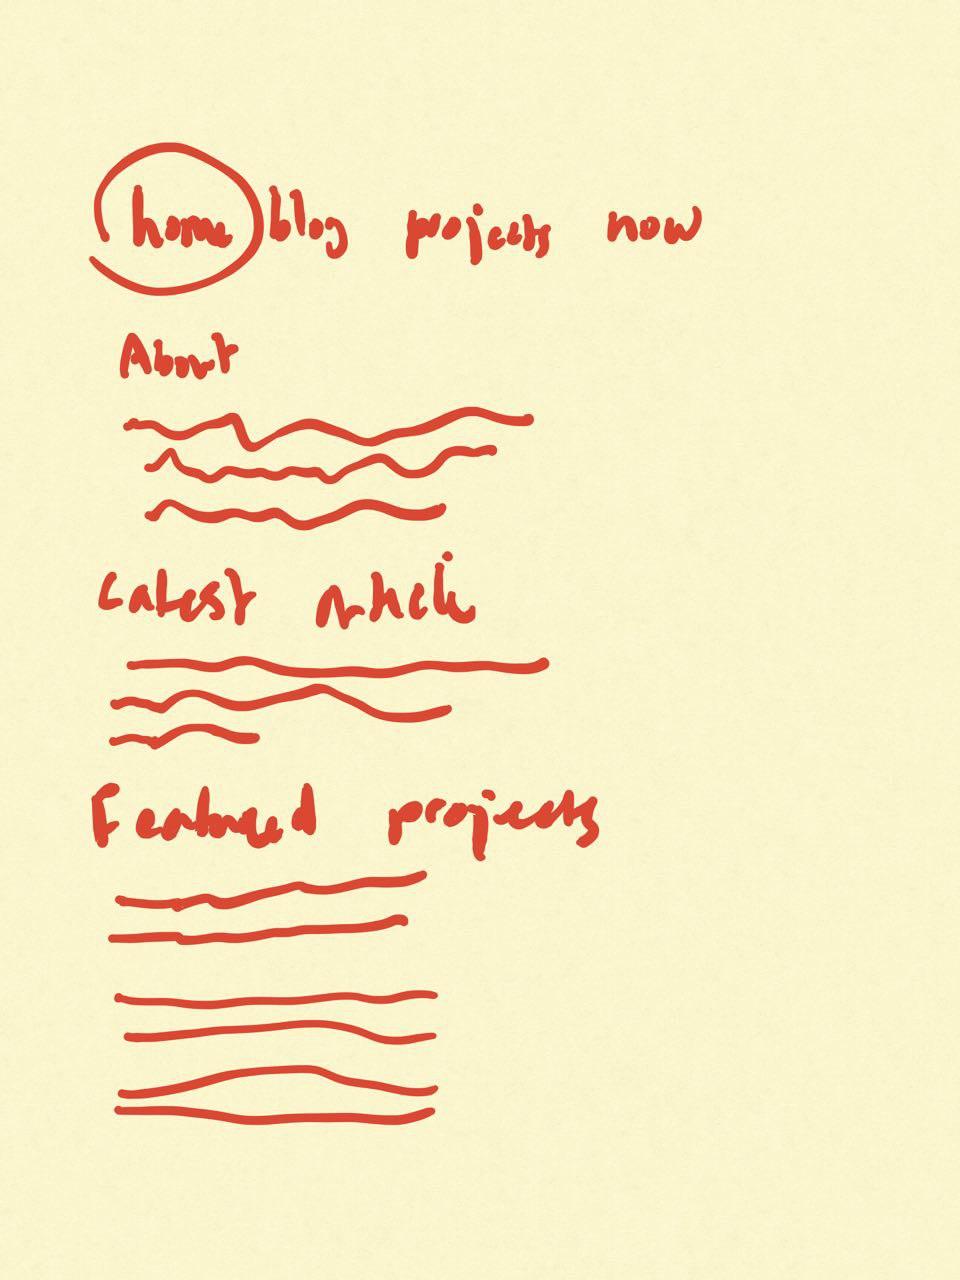 home blog projects now
About
Latest article
Featured projects